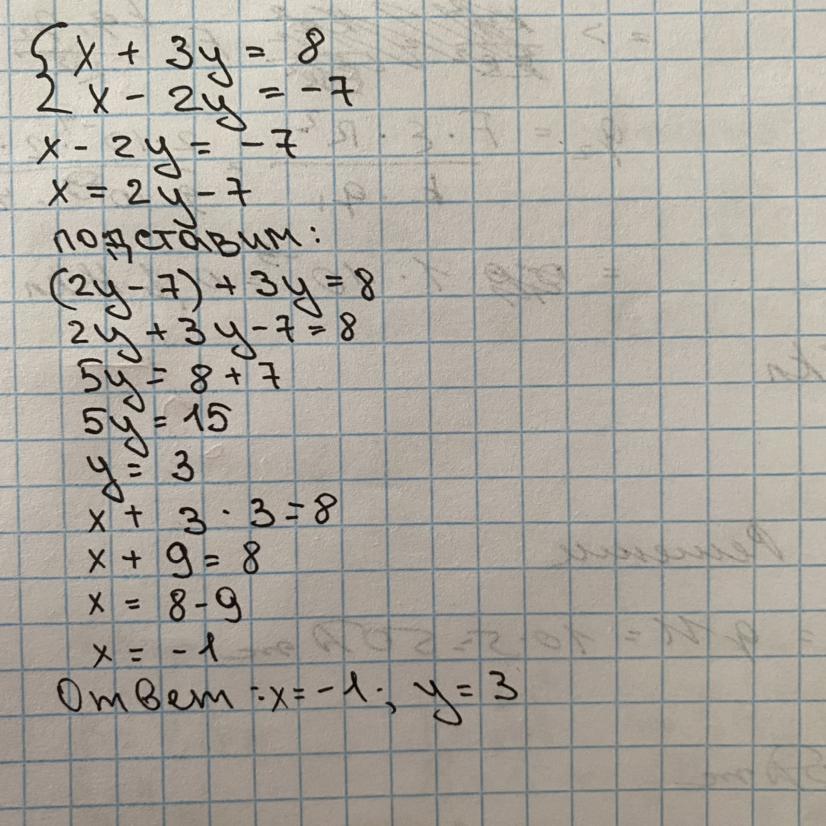 { x + 3y = 8
x - 2y = -7
x - 2y = -7
x = 2y - 7
подставим:
(2y - 7) + 3y = 8
2y + 3y - 7 = 8
5y = 8 + 7
5y = 15
y = 3
x + 3 · 3 = 8
x + 9 = 8
x = 8 - 9
x = -1
Ответ: x = -1; y = 3